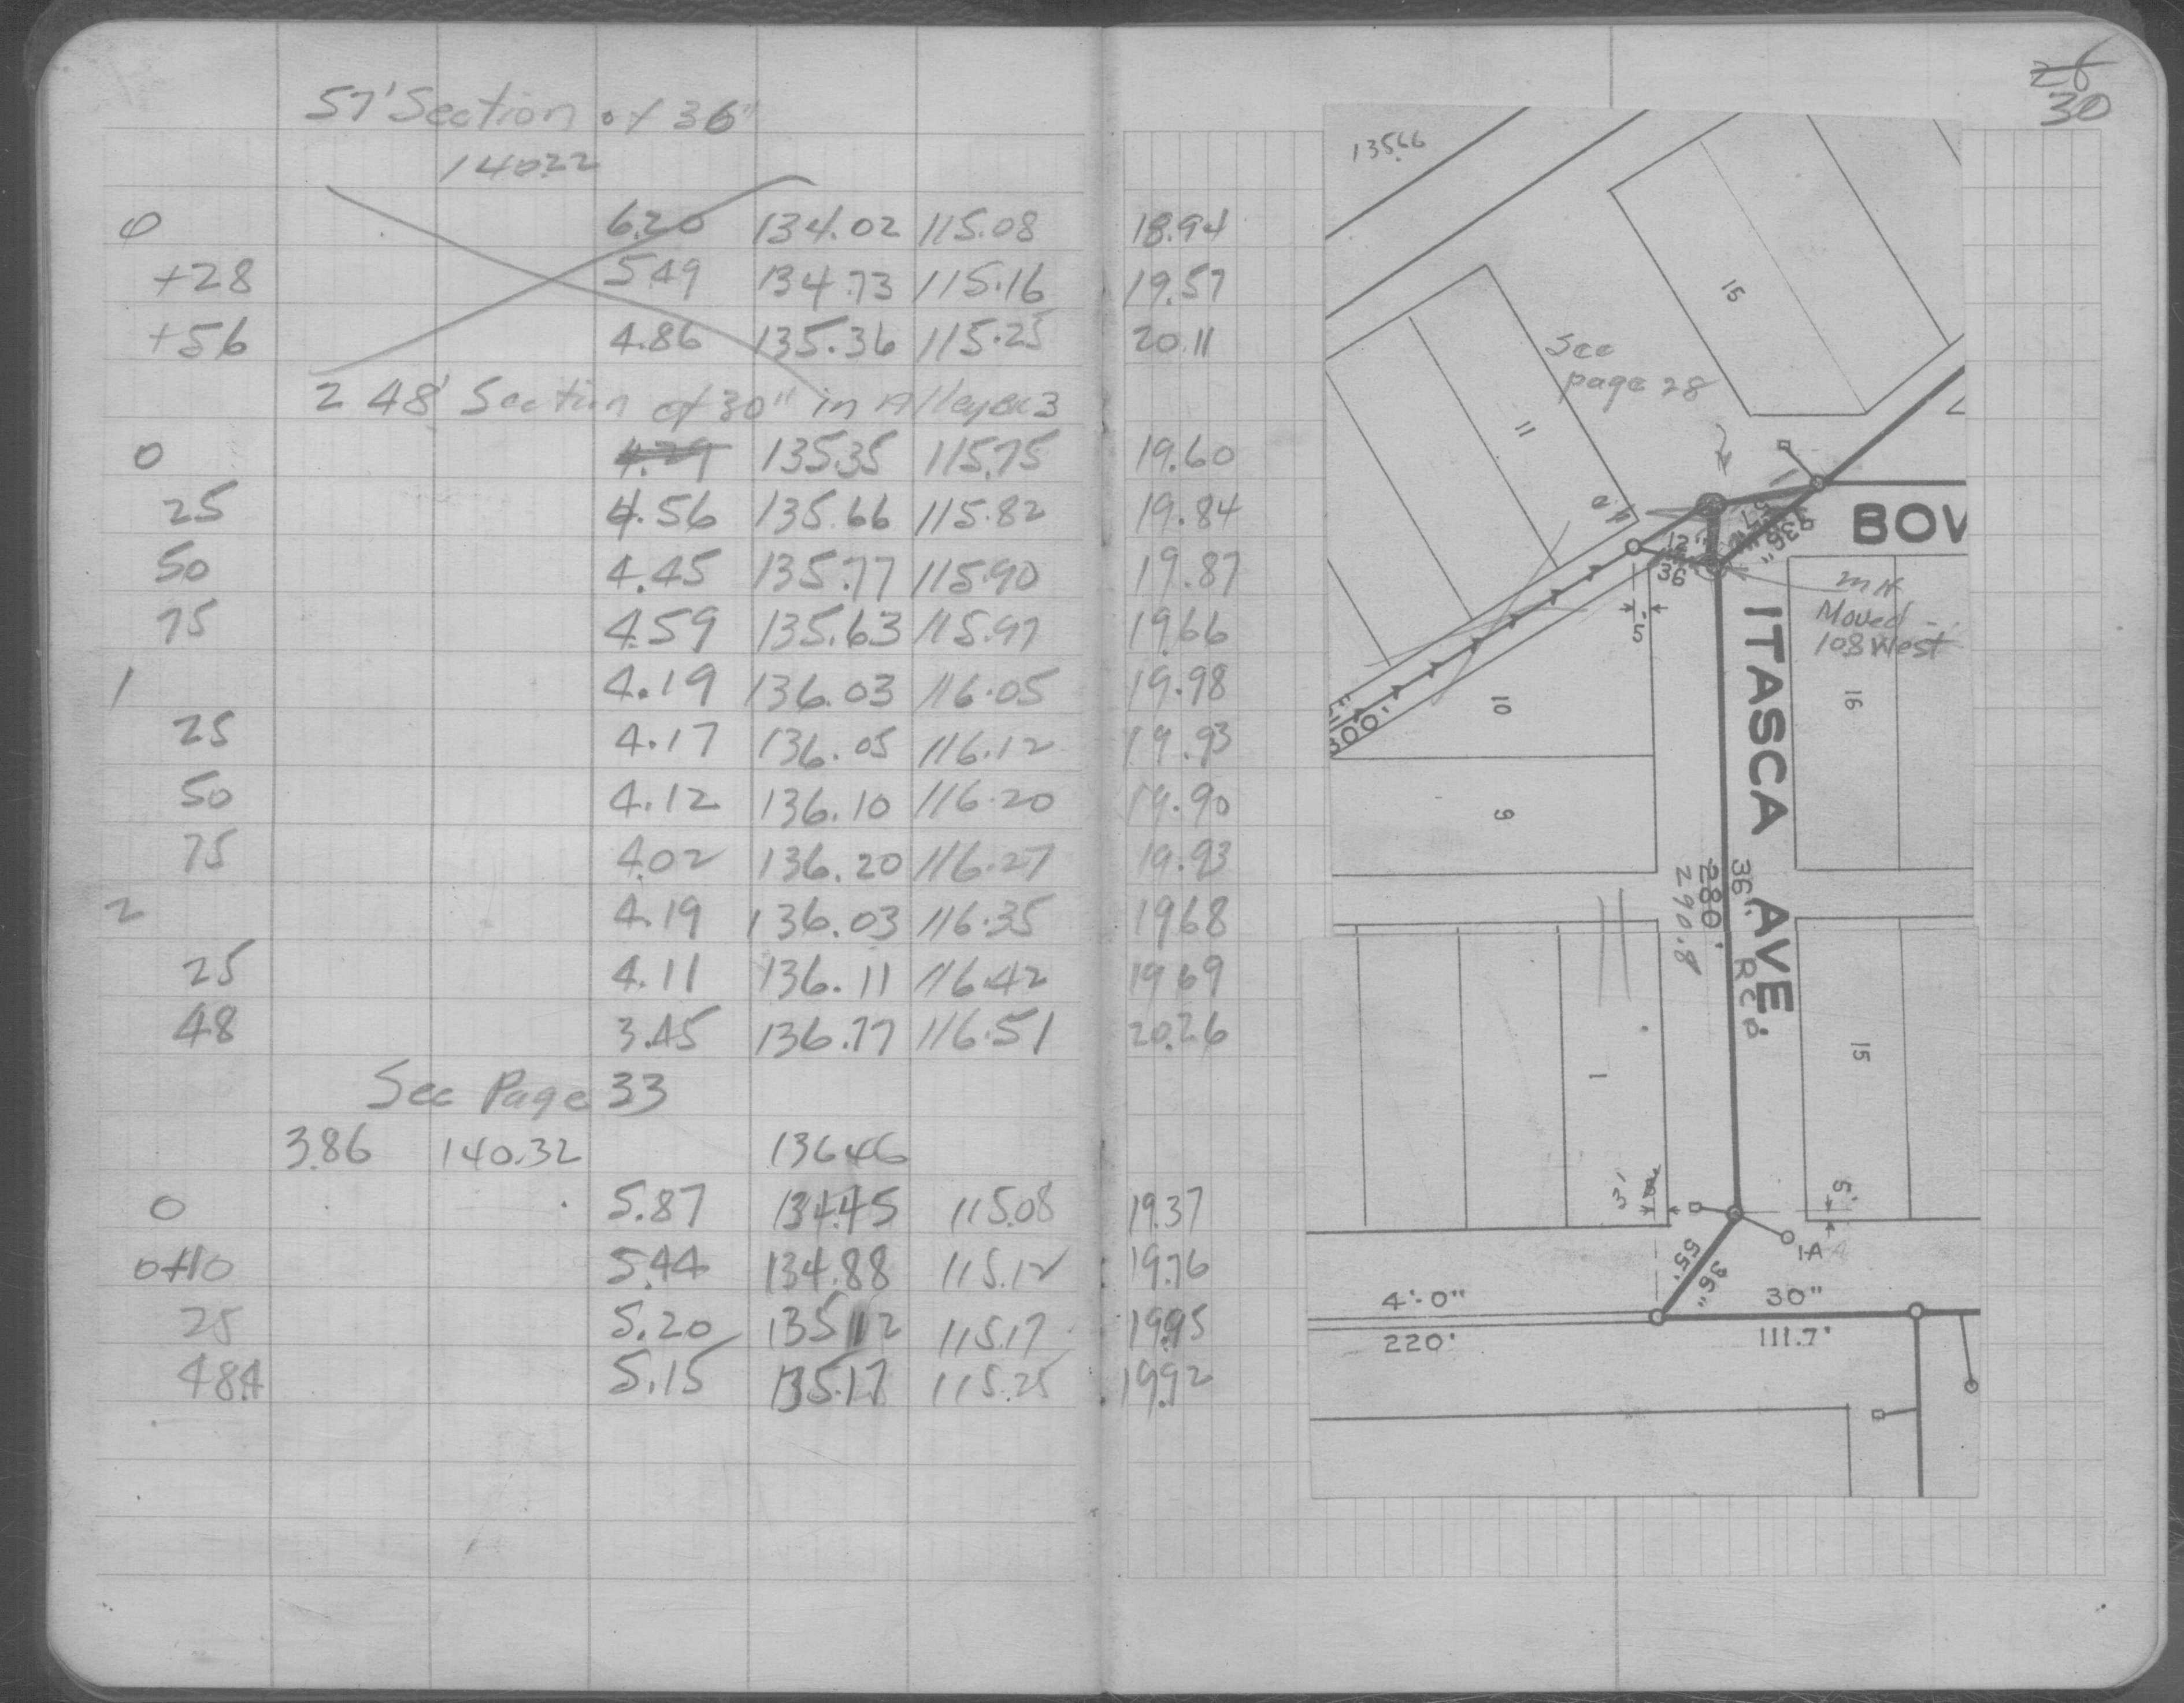 57' Section of 36"
140.22
0 6.20 134.02 115.08 18.94
+28 5.49 134.73 115.16 19.57
+56 4.86 135.36 115.25 20.11
248' Section of 30" in Alley Bk 3
0 4.79 135.35 115.75 19.60
25 4.56 135.66 115.82 19.84
50 4.45 135.77 115.90 19.87
75 4.59 135.63 115.97 19.66
1 4.19 136.03 116.05 19.98
25 4.17 136.05 116.12 19.93
50 4.12 136.10 116.20 19.90
75 4.02 136.20 116.27 19.93
2 4.19 136.03 116.35 19.68
25 4.11 136.11 116.42 19.69
48 3.45 136.77 116.51 20.26
See Page 33
3.86 140.32 136.46
0 5.87 134.45 115.08 19.37
0+10 5.44 134.88 115.12 19.76
25 5.20 135.12 115.17 19.95
48.4 5.15 135.17 115.25 19.92
26
30
135.66
15
See
page 28
11
BOW
12"
36
36"
5'
MH
Moved
108 West
ITASCA AVE.
10
16
300'
9
36" RCP
280'
290.8
1
15
3'
5'
1-A
55'
36"
4'-0"
220'
30"
111.7'